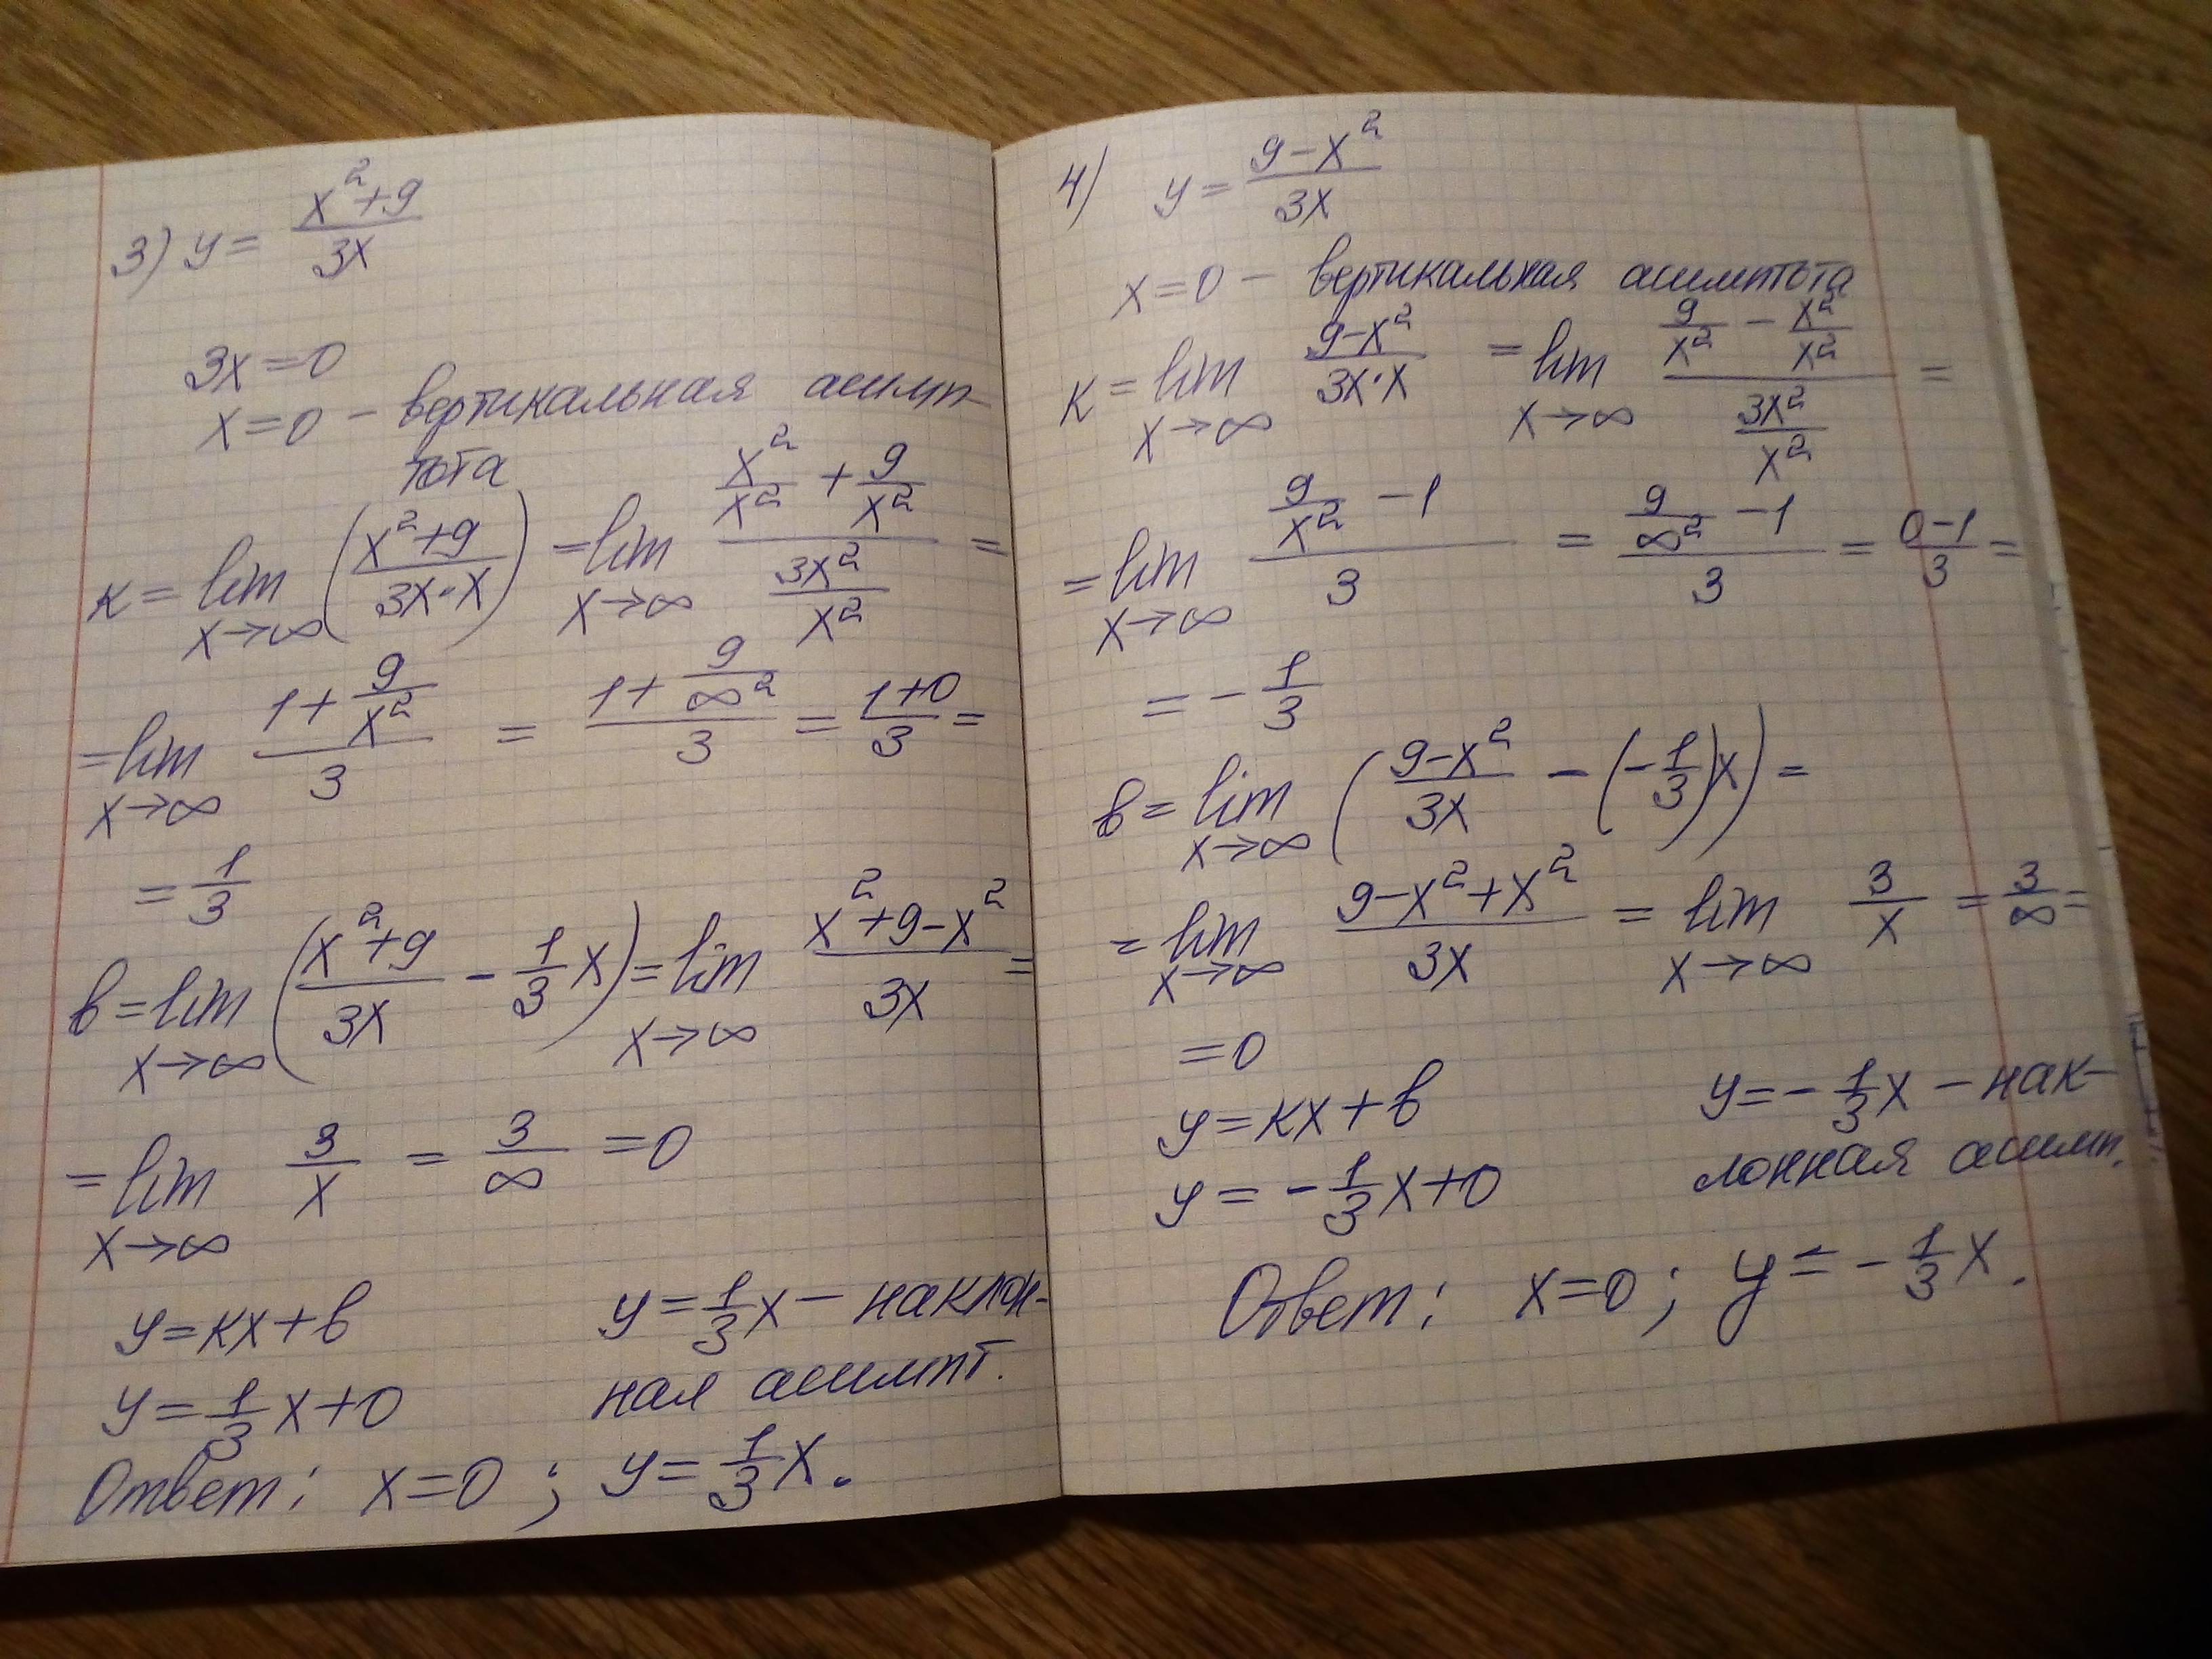 3) y = (x²+9)/(3x)
3x=0
x=0 – вертикальная асимп-
тота
к = lim x→∞ ((x²+9)/(3x·x)) = lim x→∞ (x²/x² + 9/x²)/(3x²/x²) =
= lim x→∞ (1 + 9/x²)/3 = (1 + 9/∞²)/3 = (1+0)/3 =
= 1/3
в = lim x→∞ ((x²+9)/(3x) - 1/3 x) = lim x→∞ (x²+9-x²)/(3x) =
= lim x→∞ 3/x = 3/∞ = 0
y=кx+в y = 1/3 x – наклон-
y = 1/3 x+0 ная асимпт.
Ответ: x=0 ; y = 1/3 x.
4) y = (9-x²)/(3x)
x=0 – вертикальная асимптота
к = lim x→∞ (9-x²)/(3x·x) = lim x→∞ (9/x² - x²/x²)/(3x²/x²) =
= lim x→∞ (9/x² - 1)/3 = (9/∞² - 1)/3 = (0-1)/3 =
= - 1/3
в = lim x→∞ ((9-x²)/(3x) - (-1/3)x) =
= lim x→∞ (9-x²+x²)/(3x) = lim x→∞ 3/x = 3/∞ =
=0
y=кx+в y = -1/3 x – нак-
y = -1/3 x+0 лонная асимп.
Ответ: x=0 ; y = -1/3 x.